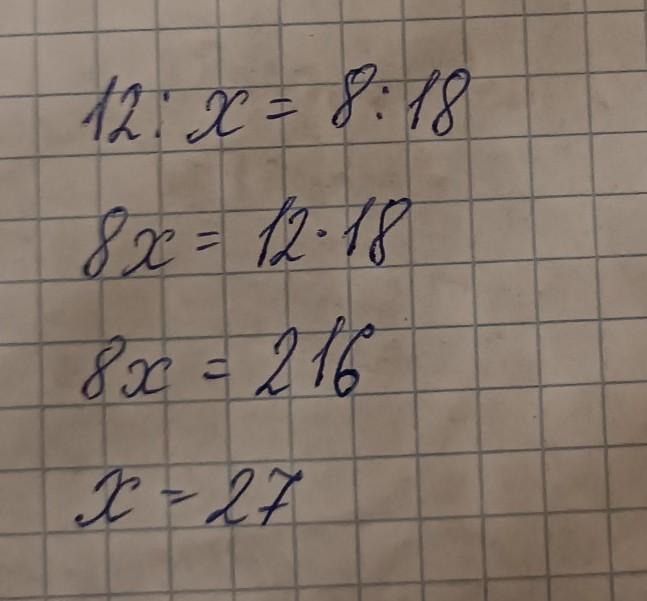 12 : x = 8 : 18
8x = 12 · 18
8x = 216
x = 27